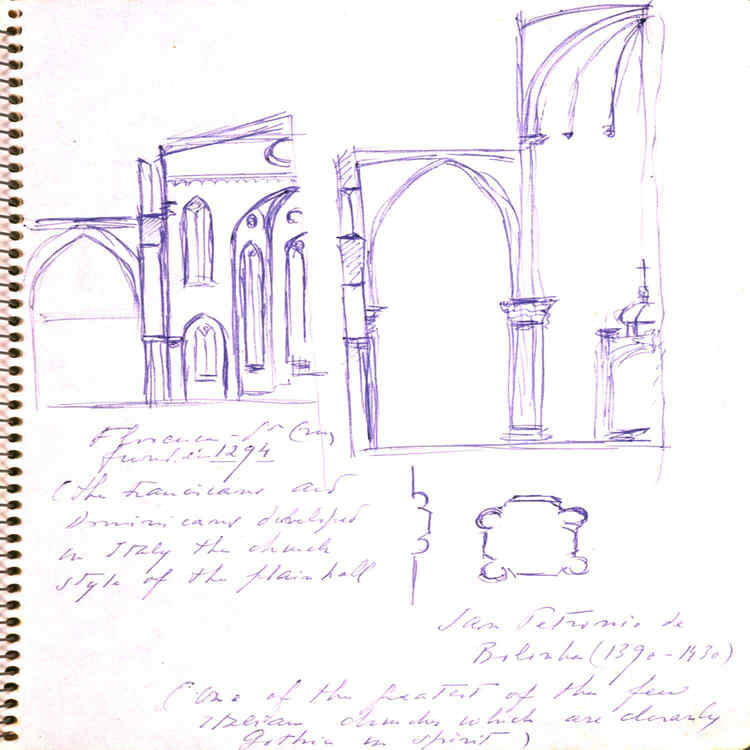 Florença - Sta Cruz
fund. in 1294
(the Francicans and
Dominicans developed
in Italy the church
style of the plain hall
San Petronio de
Bolonha (1390-1430)
(One of the greatest of the few
Italian churches which are clearly
Gothic in spirit)